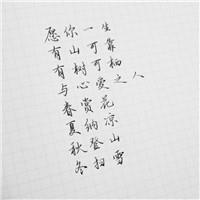 愿你一生
有山可靠
有树可栖
与心爱之人
春赏花
夏纳凉
秋登山
冬扫雪